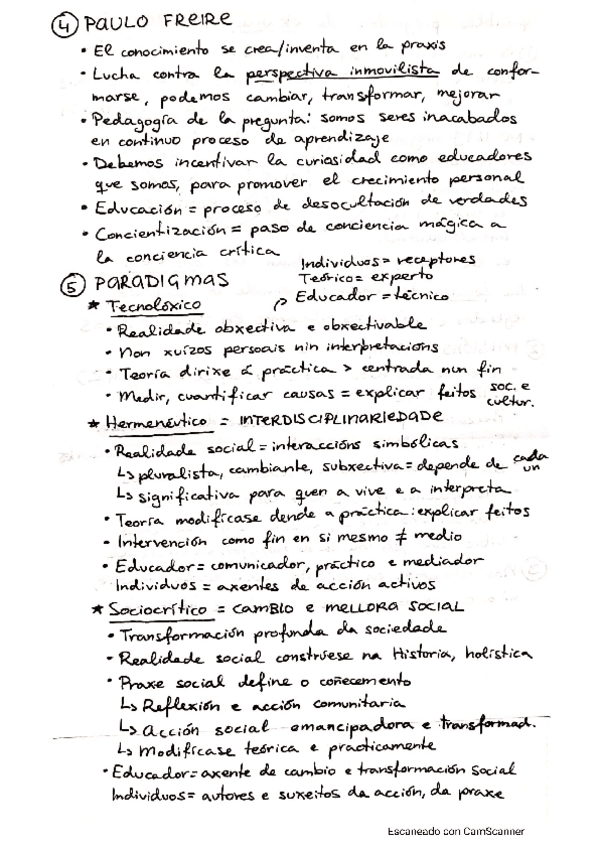 ④ PAULO FREIRE
• El conocimiento se crea/inventa en la praxis
• Lucha contra la perspectiva inmovilista de confor-
marse, podemos cambiar, transformar, mejorar
• Pedagogía de la pregunta: somos seres inacabados
en continuo proceso de aprendizaje
• Debemos incentivar la curiosidad como educadores
que somos, para promover el crecimiento personal
• Educación = proceso de desocultación de verdades
• Concientización = paso de conciencia mágica a
la conciencia crítica
⑤ PARADIGMAS
Individuos = receptores
Teórico = experto
Educador = técnico
★ Tecnolóxico
• Realidade obxectiva e obxectivable
• Non xuízos persoais nin interpretacións
• Teoría dirixe á práctica > centrada nun fin
• Medir, cuantificar causas = explicar feitos soc. e
cultur.
★ Hermenéutico = INTERDISCIPLINARIEDADE
• Realidade social = interaccións simbólicas
↳ pluralista, cambiante, subxectiva = depende de cada
un
↳ significativa para quen a vive e a interpreta
• Teoría modifícase dende a práctica: explicar feitos
• Intervención como fin en si mesmo ≠ medio
• Educador = comunicador, práctico e mediador
Individuos = axentes de acción activos
★ Sociocrítico = CAMBIO E MELLORA SOCIAL
• Transformación profunda da sociedade
• Realidade social constrúese na Historia, holística
• Praxe social define o coñecemento
↳ Reflexión e acción comunitaria
↳ Acción social emancipadora e transformad.
↳ Modifícase teórica e practicamente
• Educador = axente de cambio e transformación social
Individuos = autores e suxeitos da acción, da praxe
Escaneado con CamScanner